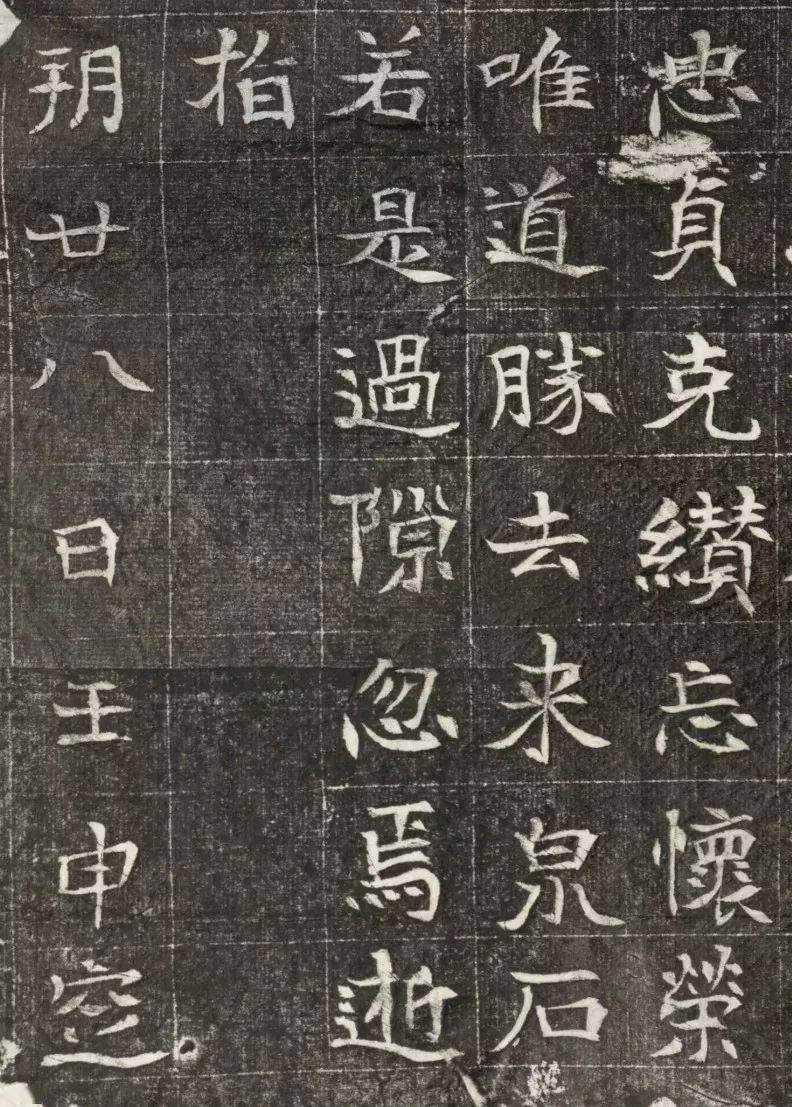 忠貞克纘忘懷榮
唯道勝去来泉石
若是過隙忽焉逝
指
朔廿八日壬申窆